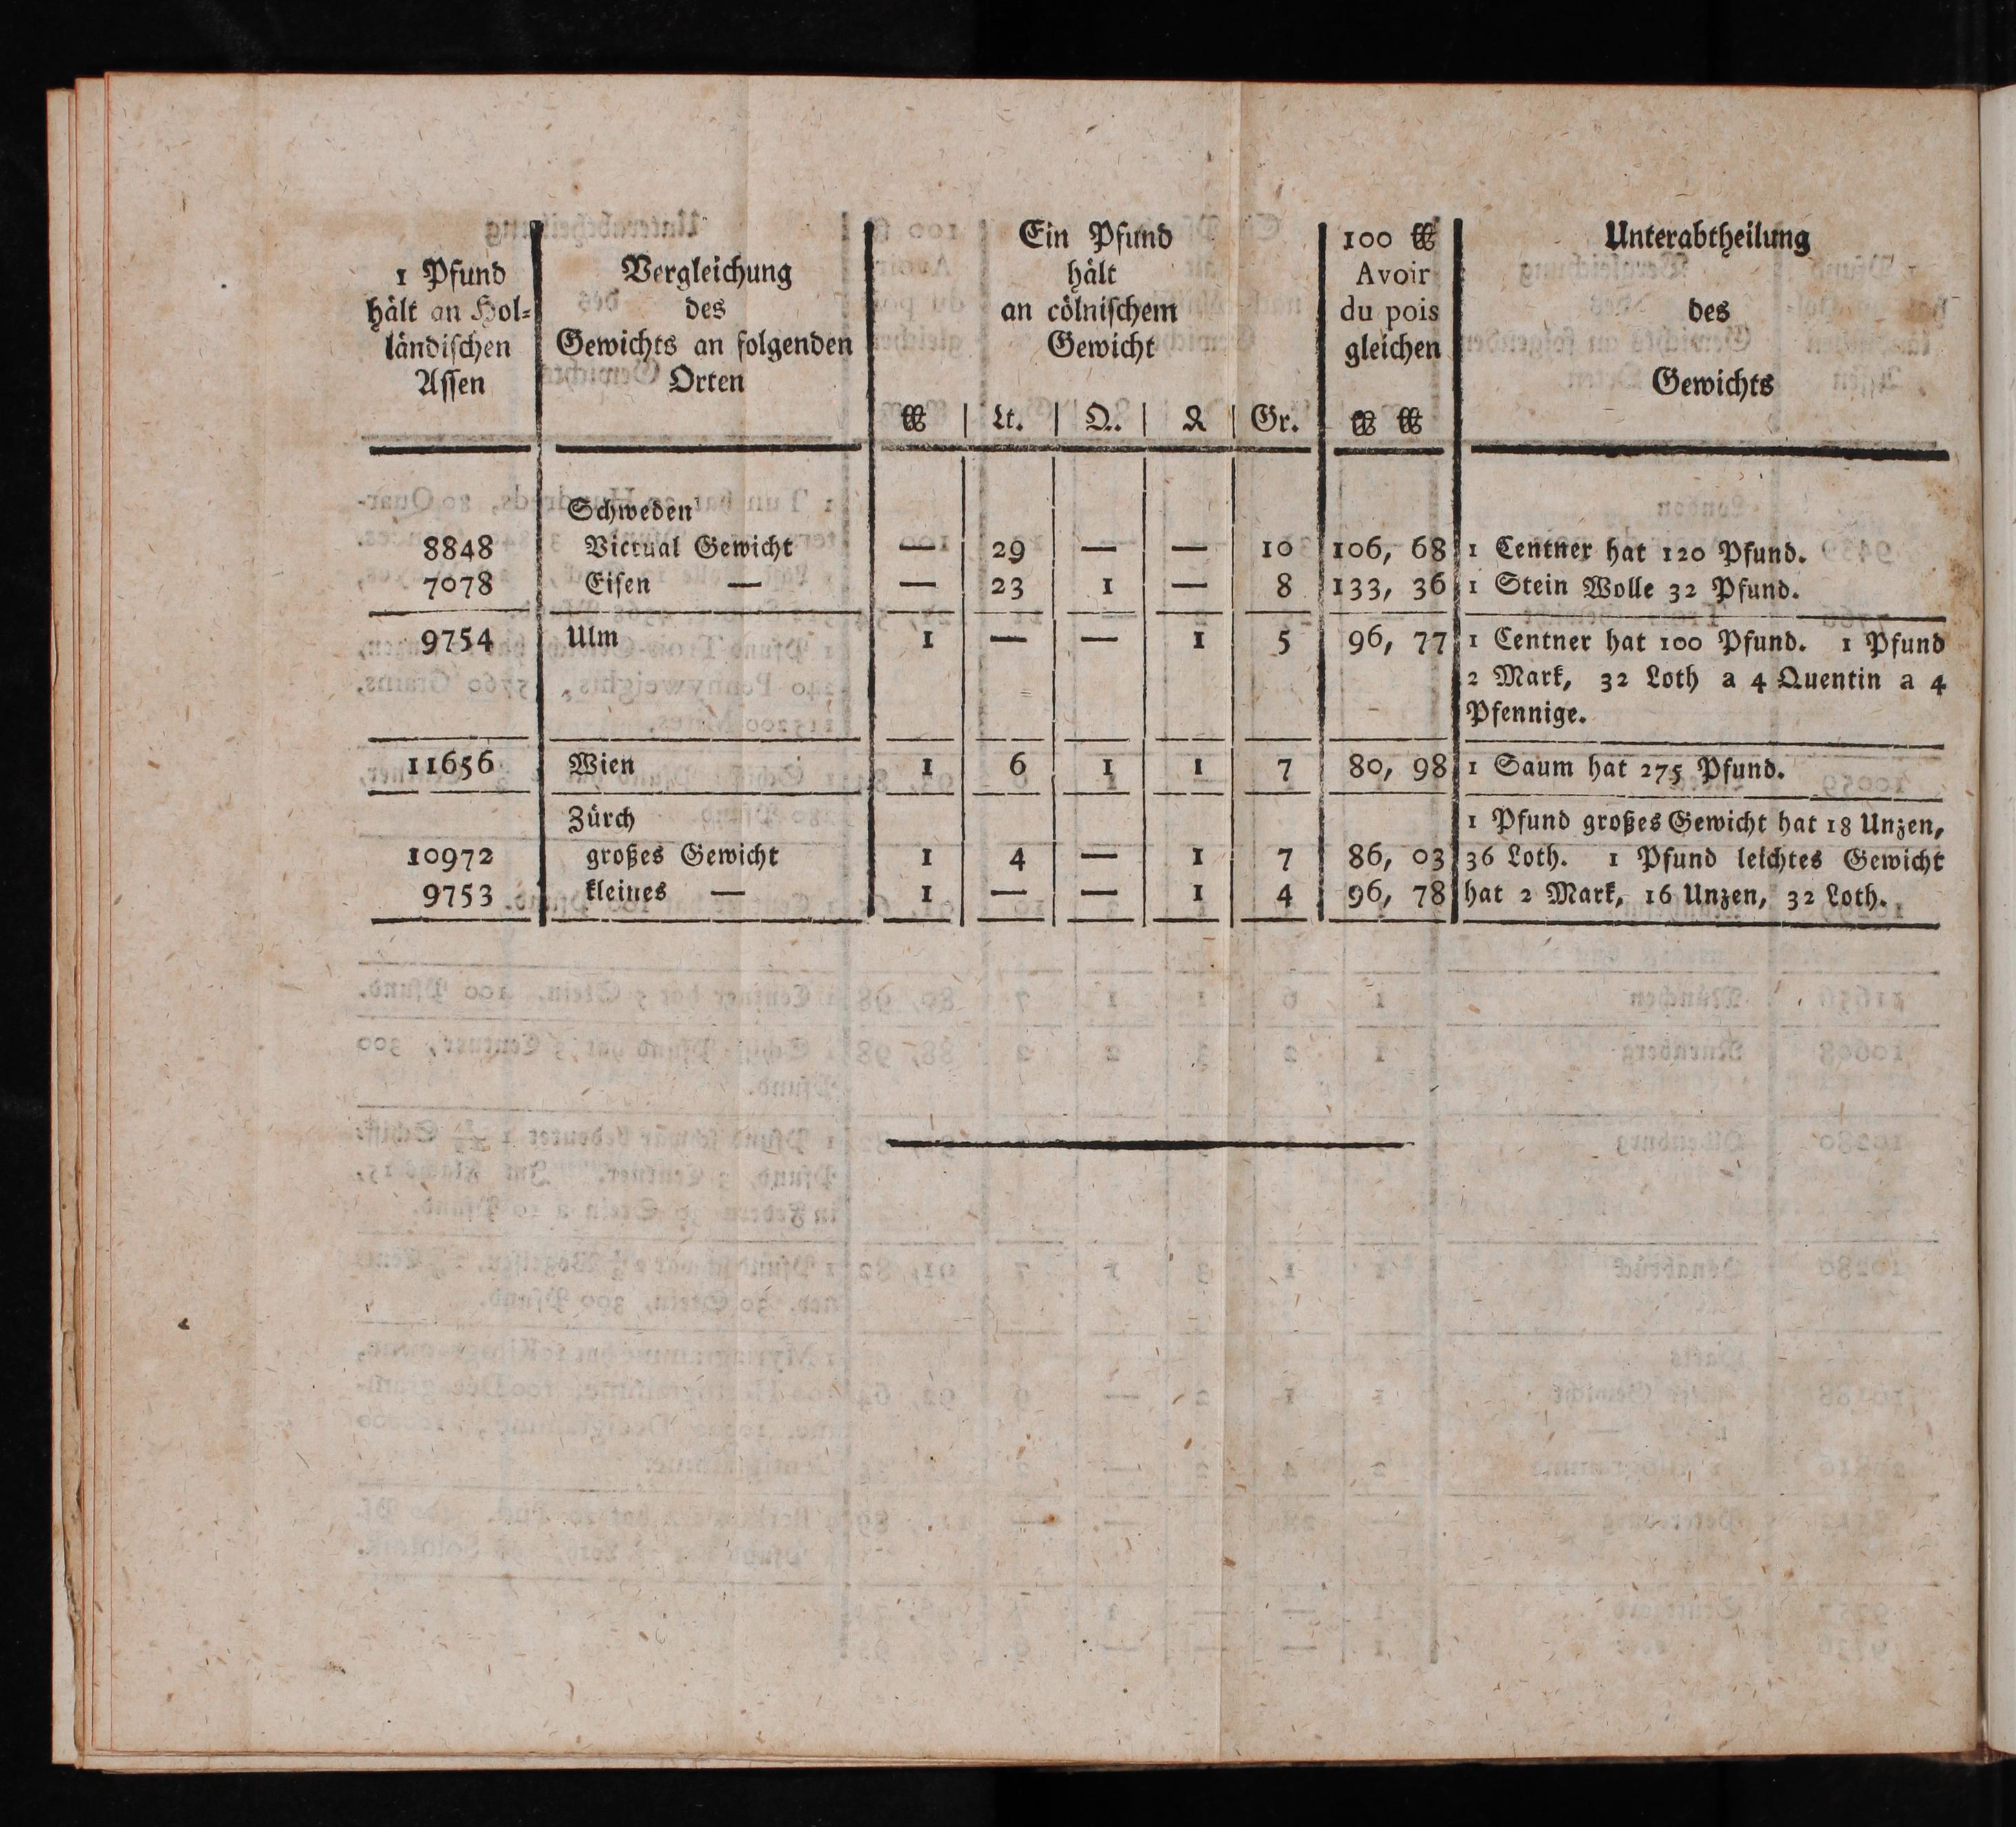 1 Pfund
hält an Hol-
ländischen
Assen
Vergleichung
des
Gewichts an folgenden
Orten
Ein Pfund
hält
an cölnischem
Gewicht
℔ | Lt. | Q. | | Gr.
100 ℔
Avoir
du pois
gleichen
℔ ℔
Unterabtheilung
des
Gewichts
Schweden
8848 Victual Gewicht — 29 — — 10 106, 68 1 Centner hat 120 Pfund.
7078 Eisen — — 23 1 — 8 133, 36 1 Stein Wolle 32 Pfund.
9754 Ulm 1 — — 1 5 96, 77 1 Centner hat 100 Pfund. 1 Pfund
2 Mark, 32 Loth a 4 Quentin a 4
Pfennige.
11656 Wien 1 6 1 1 7 80, 98 1 Saum hat 275 Pfund.
Zürch 1 Pfund großes Gewicht hat 18 Unzen,
10972 großes Gewicht 1 4 — 1 7 86, 03 36 Loth. 1 Pfund leichtes Gewicht
9753 kleines — 1 — — 1 4 96, 78 hat 2 Mark, 16 Unzen, 32 Loth.